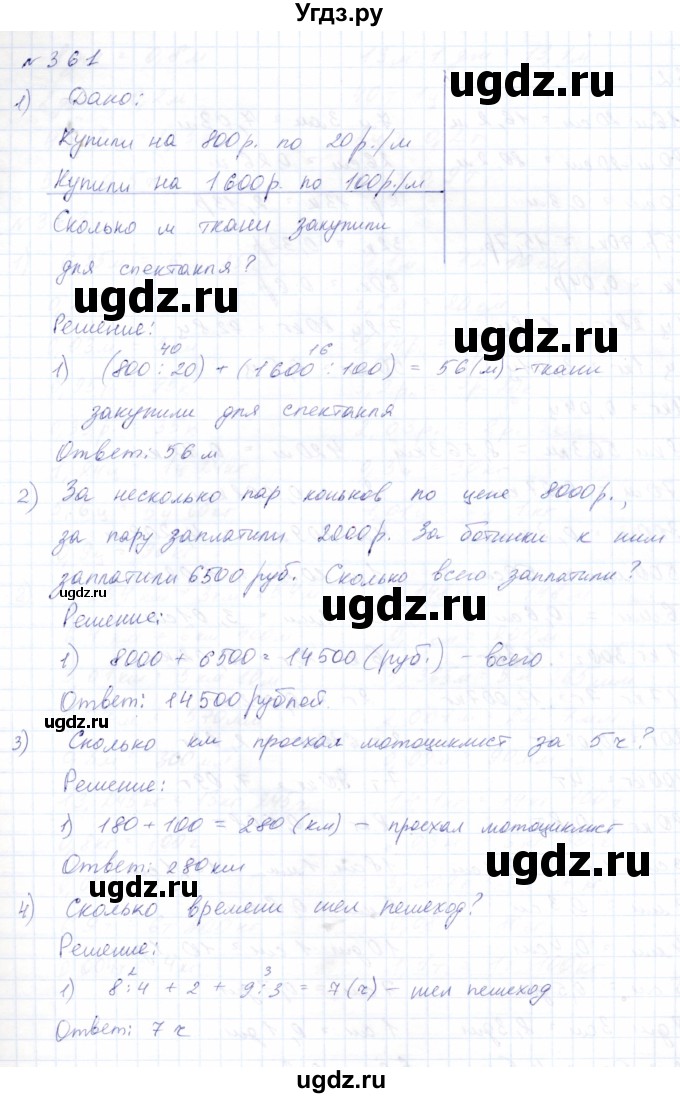 Угдз.ру
№361
1) Дано:
Купили на 800р. по 20р./м
Купили на 1600р. по 100р./м
Сколько м ткани закупили
для спектакля?
Решение:
40 16
1) (800:20) + (1600:100) = 56(м) - ткани
закупили для спектакля
Ответ: 56 м
2) За несколько пар коньков по цене 8000р.,
за пару заплатили 2000р. За ботинки к ним
заплатили 6500 руб. Сколько всего заплатили?
Решение:
1) 8000 + 6500 = 14500 (руб.) - всего.
Ответ: 14500 рублей.
3) Сколько км проехал мотоциклист за 5ч?
Решение:
1) 180 + 100 = 280 (км) - проехал мотоциклист
Ответ: 280км
4) Сколько времени шел пешеход?
Решение:
2 3
1) 8:4 + 2 + 9:3 = 7(ч) - шел пешеход
Ответ: 7 ч
ugdz.ru
ugdz.ru
ugdz.ru
ugdz.ru
ugdz.ru
ugdz.ru
ugdz.ru
ugdz.ru
ugdz.ru
ugdz.ru